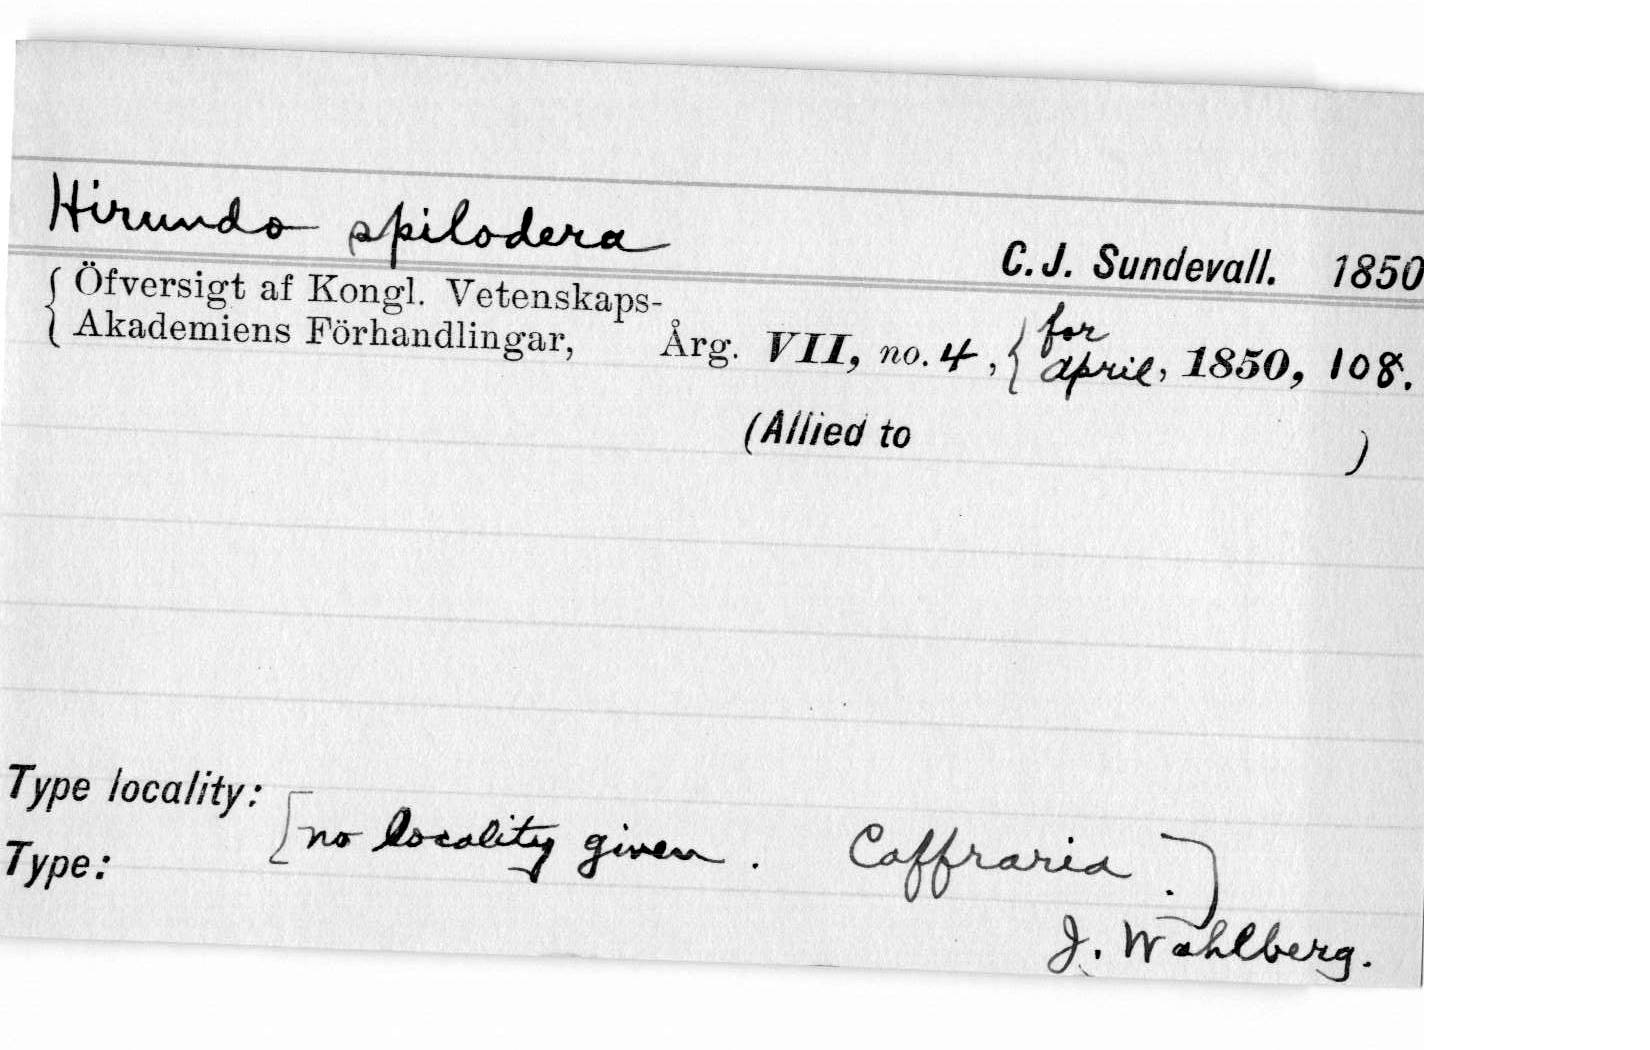 Hirundo spilodera C.J. Sundevall. 1850
{ Öfversigt af Kongl. Vetenskaps-
Akademiens Förhandlingar, Årg. VII, no. 4, { for april, 1850, 108.
(Allied to )
Type locality:
[no locality given. Caffraria.]
Type:
J. Wahlberg.